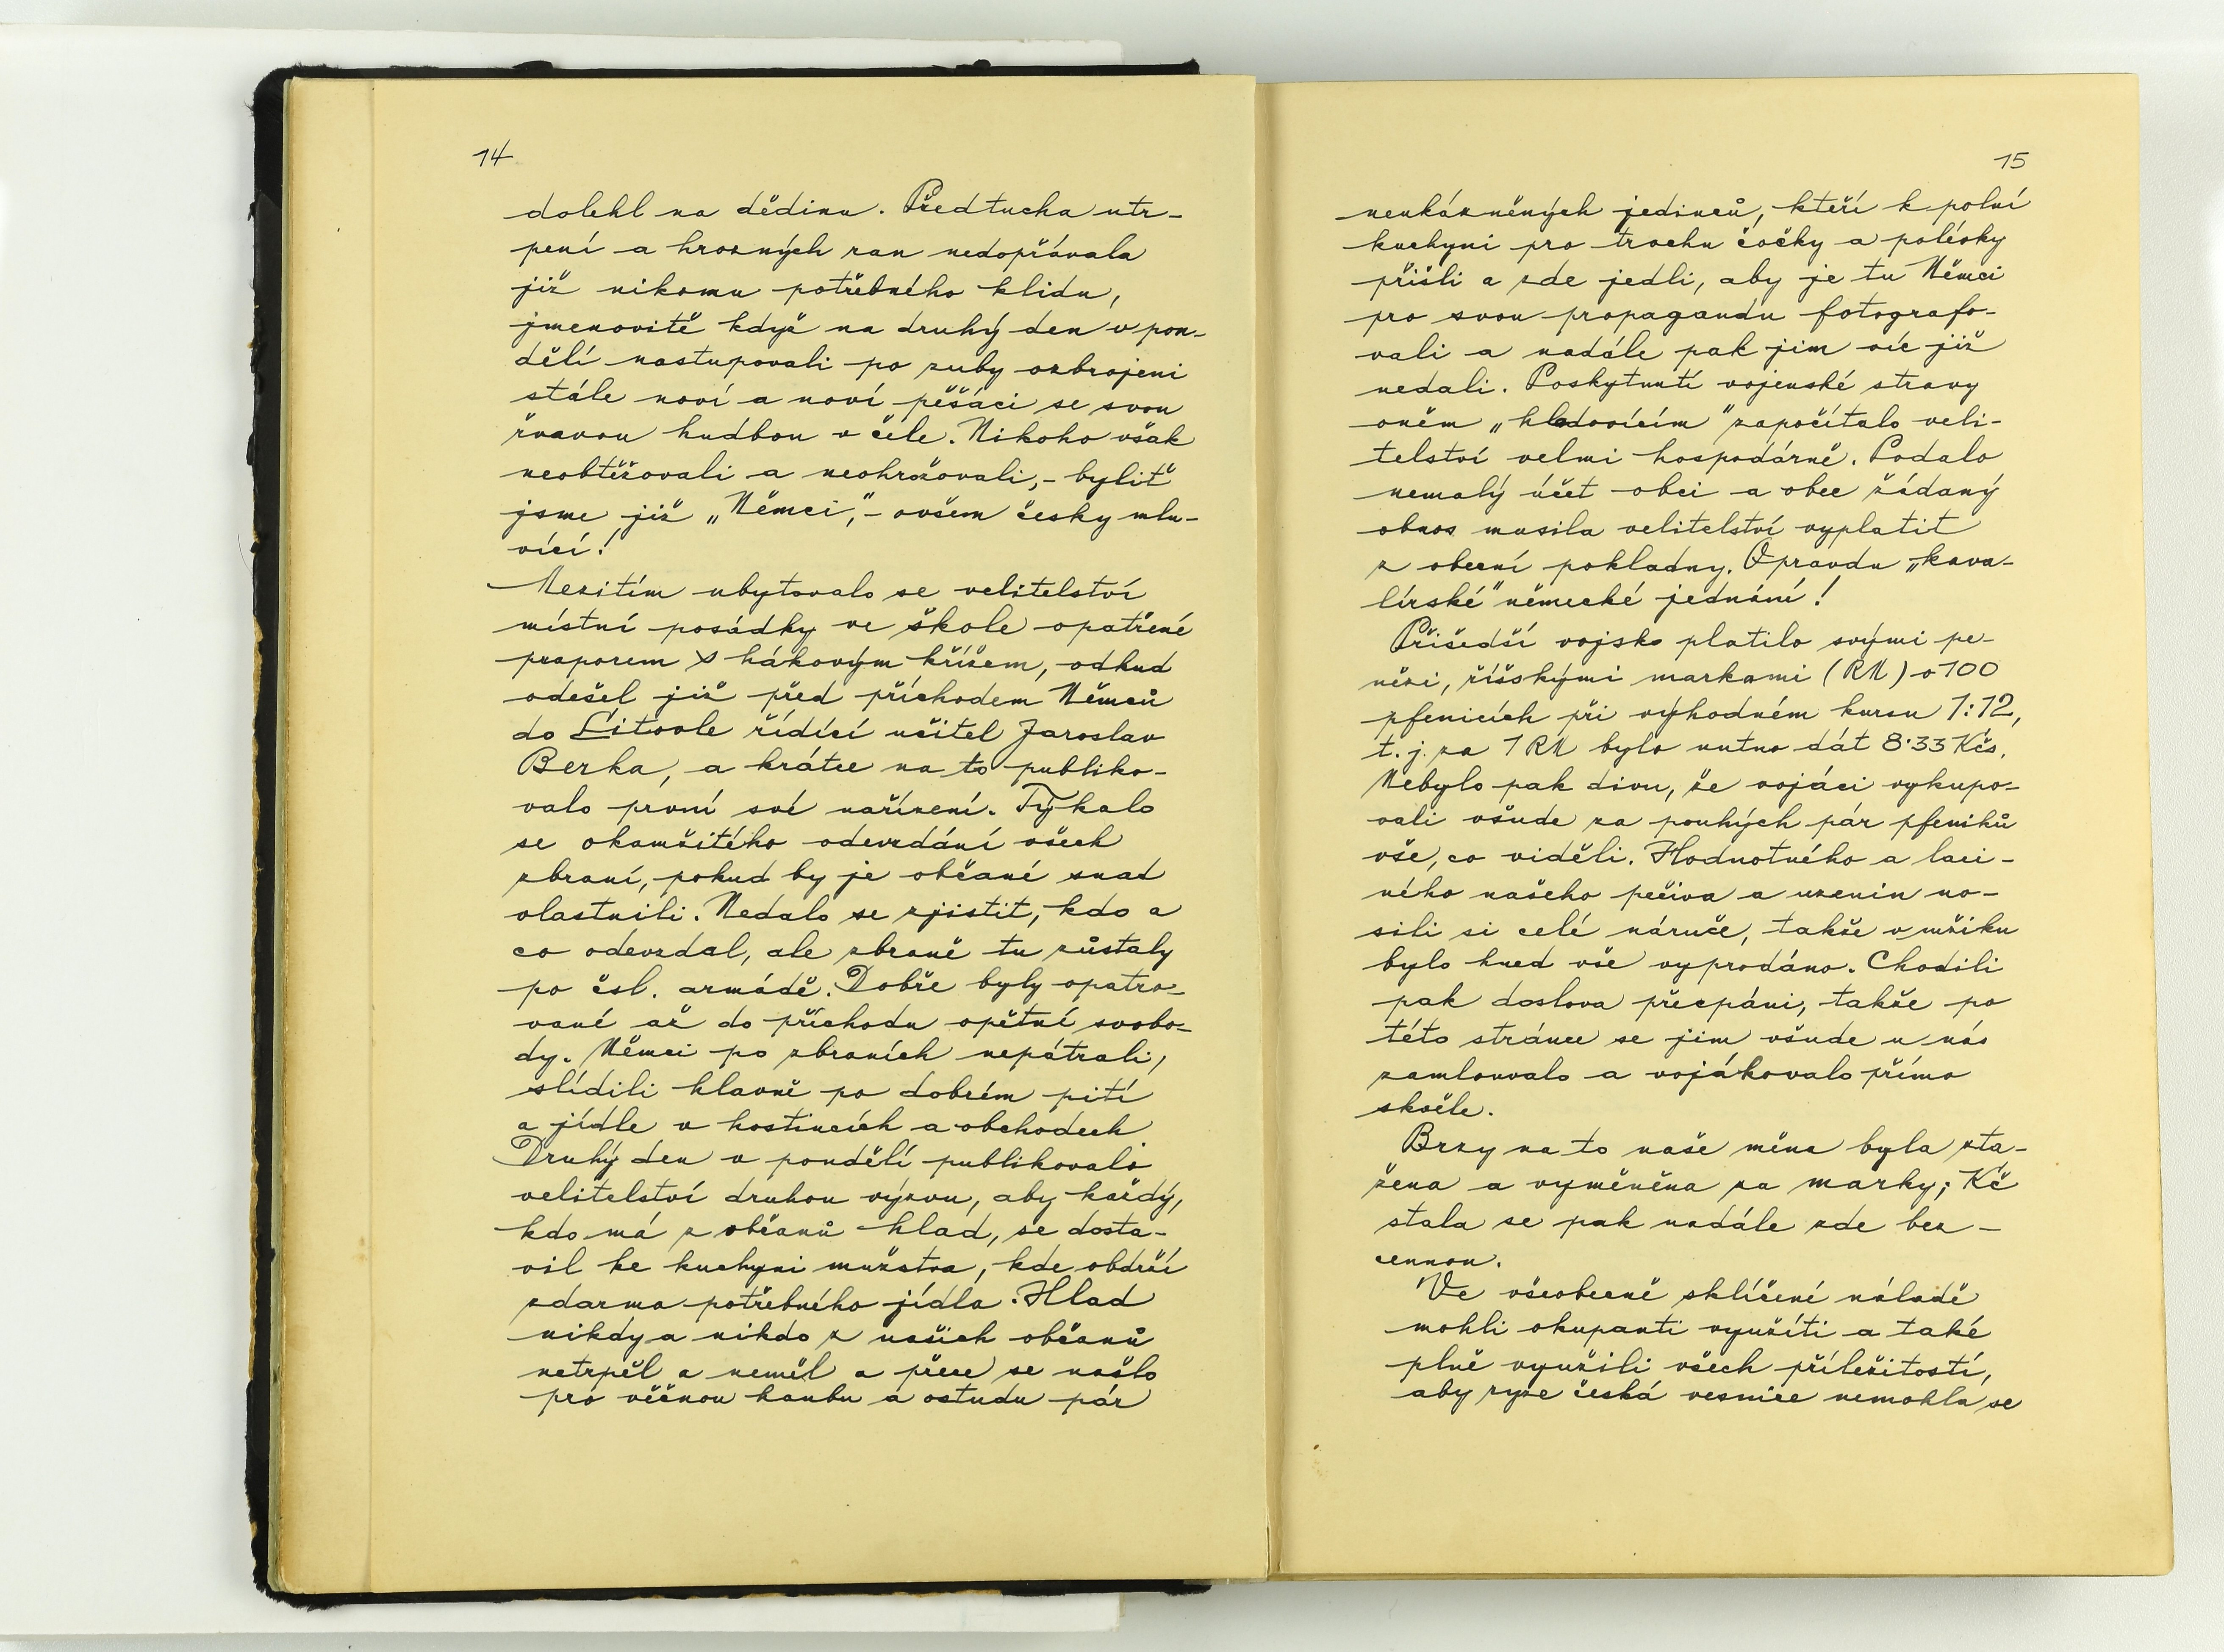 14
dolehl na dědinu. Předtucha utr-
pení a hrozných ran nedopřávala
již nikomu potřebného klidu,
jmenovitě když na druhý den v pon-
dělí nastupovali po zuby ozbrojeni
stále noví a noví pěšáci se svou
řvavou hudbou v čele. Nikoho však
neobtěžovali a neohrožovali,- byliť
jsme již „Němci”,- ovšem česky mlu-
vící!
Mezitím ubytovalo se velitelství
místní posádky ve škole opatřené
praporem s hákovým křížem, odkud
odešel již před příchodem Němců
do Litovle řídící učitel Jaroslav
Berka, a krátce na to publiko-
valo první své nařízení. Týkalo
se okamžitého odevzdání všech
zbraní, pokud by je občané snad
vlastnili. Nedalo se zjistit, kdo a
co odevzdal, ale zbraně tu zůstaly
po čsl. armádě. Dobře byly opatro-
vané až do příchodu opětné svobo-
dy. Němci po zbraních nepátrali,
slídili hlavně po dobrém pití
a jídle v hostincích a obchodech.
Druhý den v pondělí publikovalo
velitelství druhou výzvu, aby každý,
kdo má z občanů hlad, se dosta-
vil ke kuchyni mužstva, kde obdrží
zdarma potřebného jídla. Hlad
nikdy a nikdo z našich občanů
netrpěl a neměl a přece se našlo
pro věčnou hanbu a ostudu pár
15
neukázněných jedinců, kteří k polní
kuchyni pro trochu čočky a polévky
přišli a zde jedli, aby je tu Němci
pro svou propagandu fotografo-
vali a nadále pak jim víc již
nedali. Poskytnutí vojenské stravy
oněm „hladovícím” započítalo veli-
telství velmi hospodárně. Podalo
nemalý účet obci a obec žádaný
obnos musila velitelství vyplatit
z obecní pokladny. Opravdu „kava-
lírské” německé jednání!
Přišedší vojsko platilo svými pe-
nězi, říšskými markami (RM) o 100
pfenicích při výhodném kursu 1:12,
t. j. za 1 RM bylo nutno dát 8·33 Kčs.
Nebylo pak divu, že vojáci vykupo-
vali všude za pouhých pár pfeniků
vše, co viděli. Hodnotného a laci-
ného našeho pečiva a uzenin no-
sili si celé náruče, takže v mžiku
bylo hned vše vyprodáno. Chodili
pak doslova přecpáni, takže po
této stránce se jim všude u nás
zamlouvalo a vojákovalo přímo
skvěle.
Brzy na to naše měna byla sta-
žena a vyměněna za marky; Kč
stala se pak nadále zde bez-
cennou.
Ve všeobecně sklíčené náladě
mohli okupanti využíti a také
plně využili všech příležitostí,
aby ryze česká vesnice nemohla se